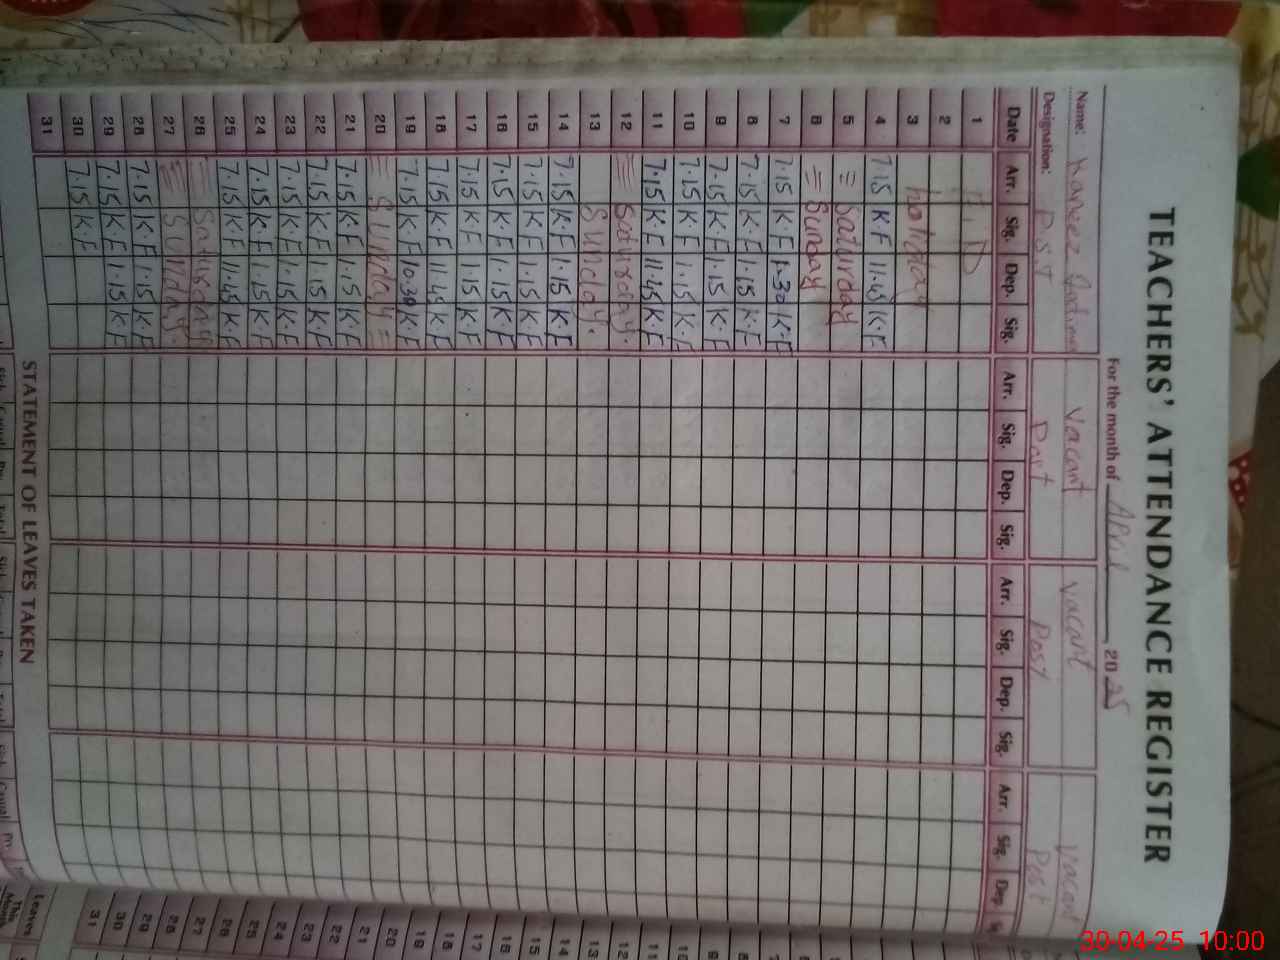 TEACHERS' ATTENDANCE REGISTER
For the month of April 2025
Name: Kaneez Vacant Vacant Vacant
Designation: P.S.T Post Post Post
Date Arr. Sig. Dep. Sig. Arr. Sig. Dep. Sig. Arr. Sig. Dep. Sig. Arr. Sig. Dep.
1 EID
2
3 holiday
4 7.15 K.F 11.45 K.F
5 = Saturday
6 = Sunday
7 7.15 K.F 1.30 K.F
8 7.15 K.F 1.15 K.F
9 7.15 K.F 1.15 K.F
10 7.15 K.F 1.15 K.F
11 7.15 K.F 11.45 K.F
12 Saturday.
13 Sunday.
14 7.15 K.F 1.15 K.F
15 7.15 K.F 1.15 K.F
16 7.15 K.F 1.15 K.F
17 7.15 K.F 1.15 K.F
18 7.15 K.F 11.45 K.F
19 7.15 K.F 10.30 K.F
20 = Sunday =
21 7.15 K.F 1.15 K.F
22 7.15 K.F 1.15 K.F
23 7.15 K.F 1.15 K.F
24 7.15 K.F 1.15 K.F
25 7.15 K.F 11.45 K.F
26 Saturday
27 Sunday.
28 7.15 K.F 1.15 K.F
29 7.15 K.F 1.15 K.F
30 7.15 K.F
31
STATEMENT OF LEAVES TAKEN
Leaves
This
Month
31 30 29 28 27 26 25 24 23 22 21 20 19 18 17 16 15 14 13 12 11 10 9 8 7
30-04-25 10:00